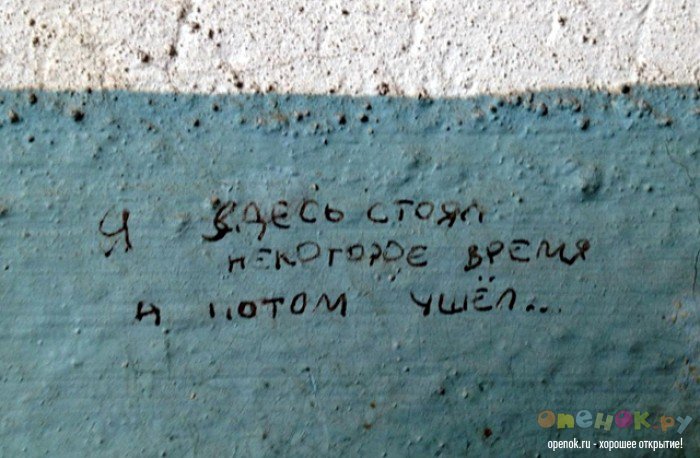 Я ЗДЕСЬ СТОЯЛ
НЕКОТОРОЕ ВРЕМЯ
А ПОТОМ УШЁЛ...
опенок.ру
openok.ru - хорошее открытие!